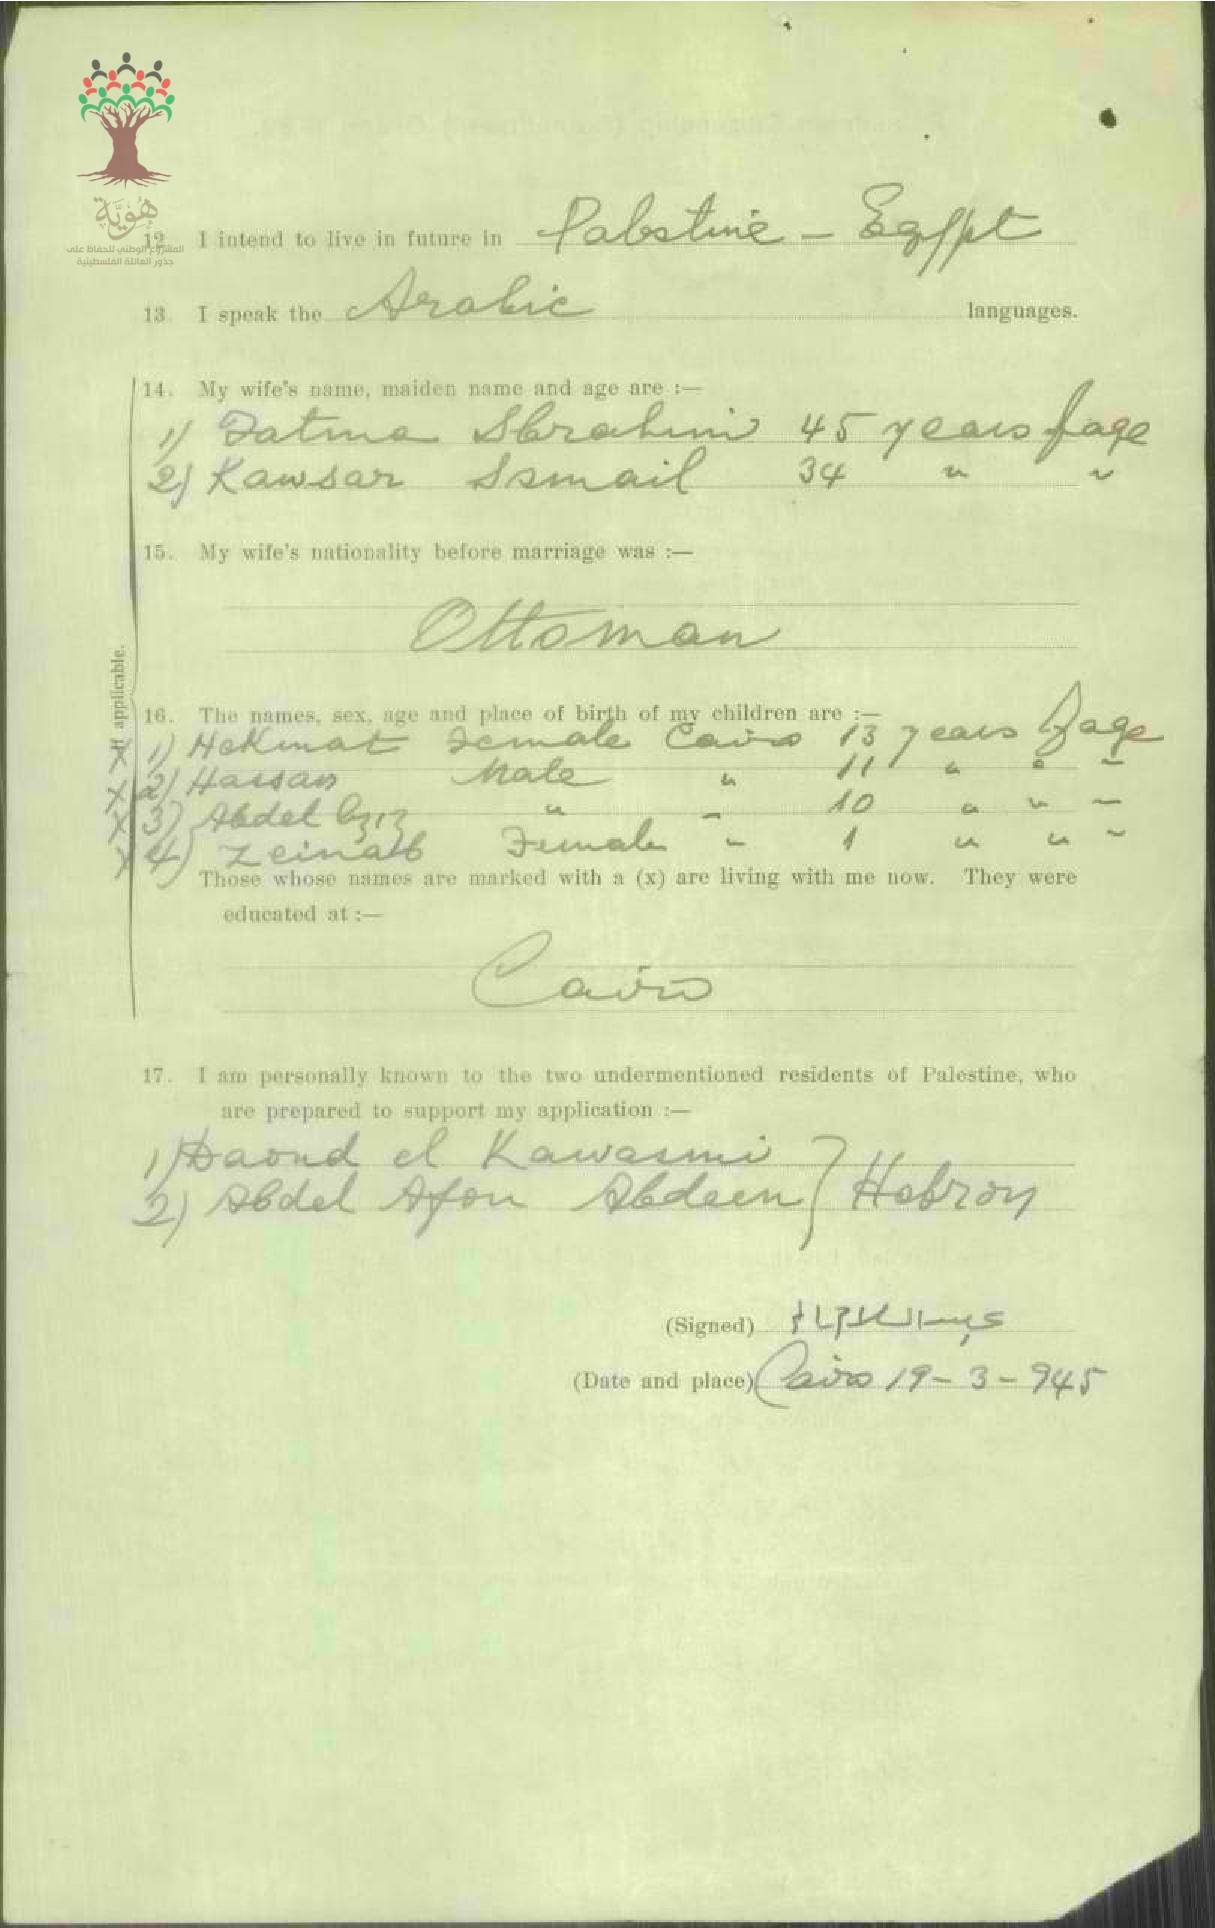 هُوِيَّة
المشروع الوطني للحفاظ على
جذور العائلة الفلسطينية
12. I intend to live in future in Palestine – Egypt
13. I speak the Arabic languages.
14. My wife's name, maiden name and age are :—
1) Fatma Ibrahim 45 years of age
2) Kawsar Ismail 34 " "
15. My wife's nationality before marriage was :—
Ottoman
If applicable.
16. The names, sex, age and place of birth of my children are :—
x 1) Hekmat Female Cairo 13 years of age
x 2) Hassan Male " 11 " " "
x 3) Abdel Aziz " " 10 " " "
x 4) Zeinab Female " 1 " " "
Those whose names are marked with a (x) are living with me now. They were
educated at :—
Cairo
17. I am personally known to the two undermentioned residents of Palestine, who
are prepared to support my application :—
1) Daoud el Kawasmi
2) Abdel Abdeen } Hebron
(Signed)
(Date and place) Cairo 19-3-945